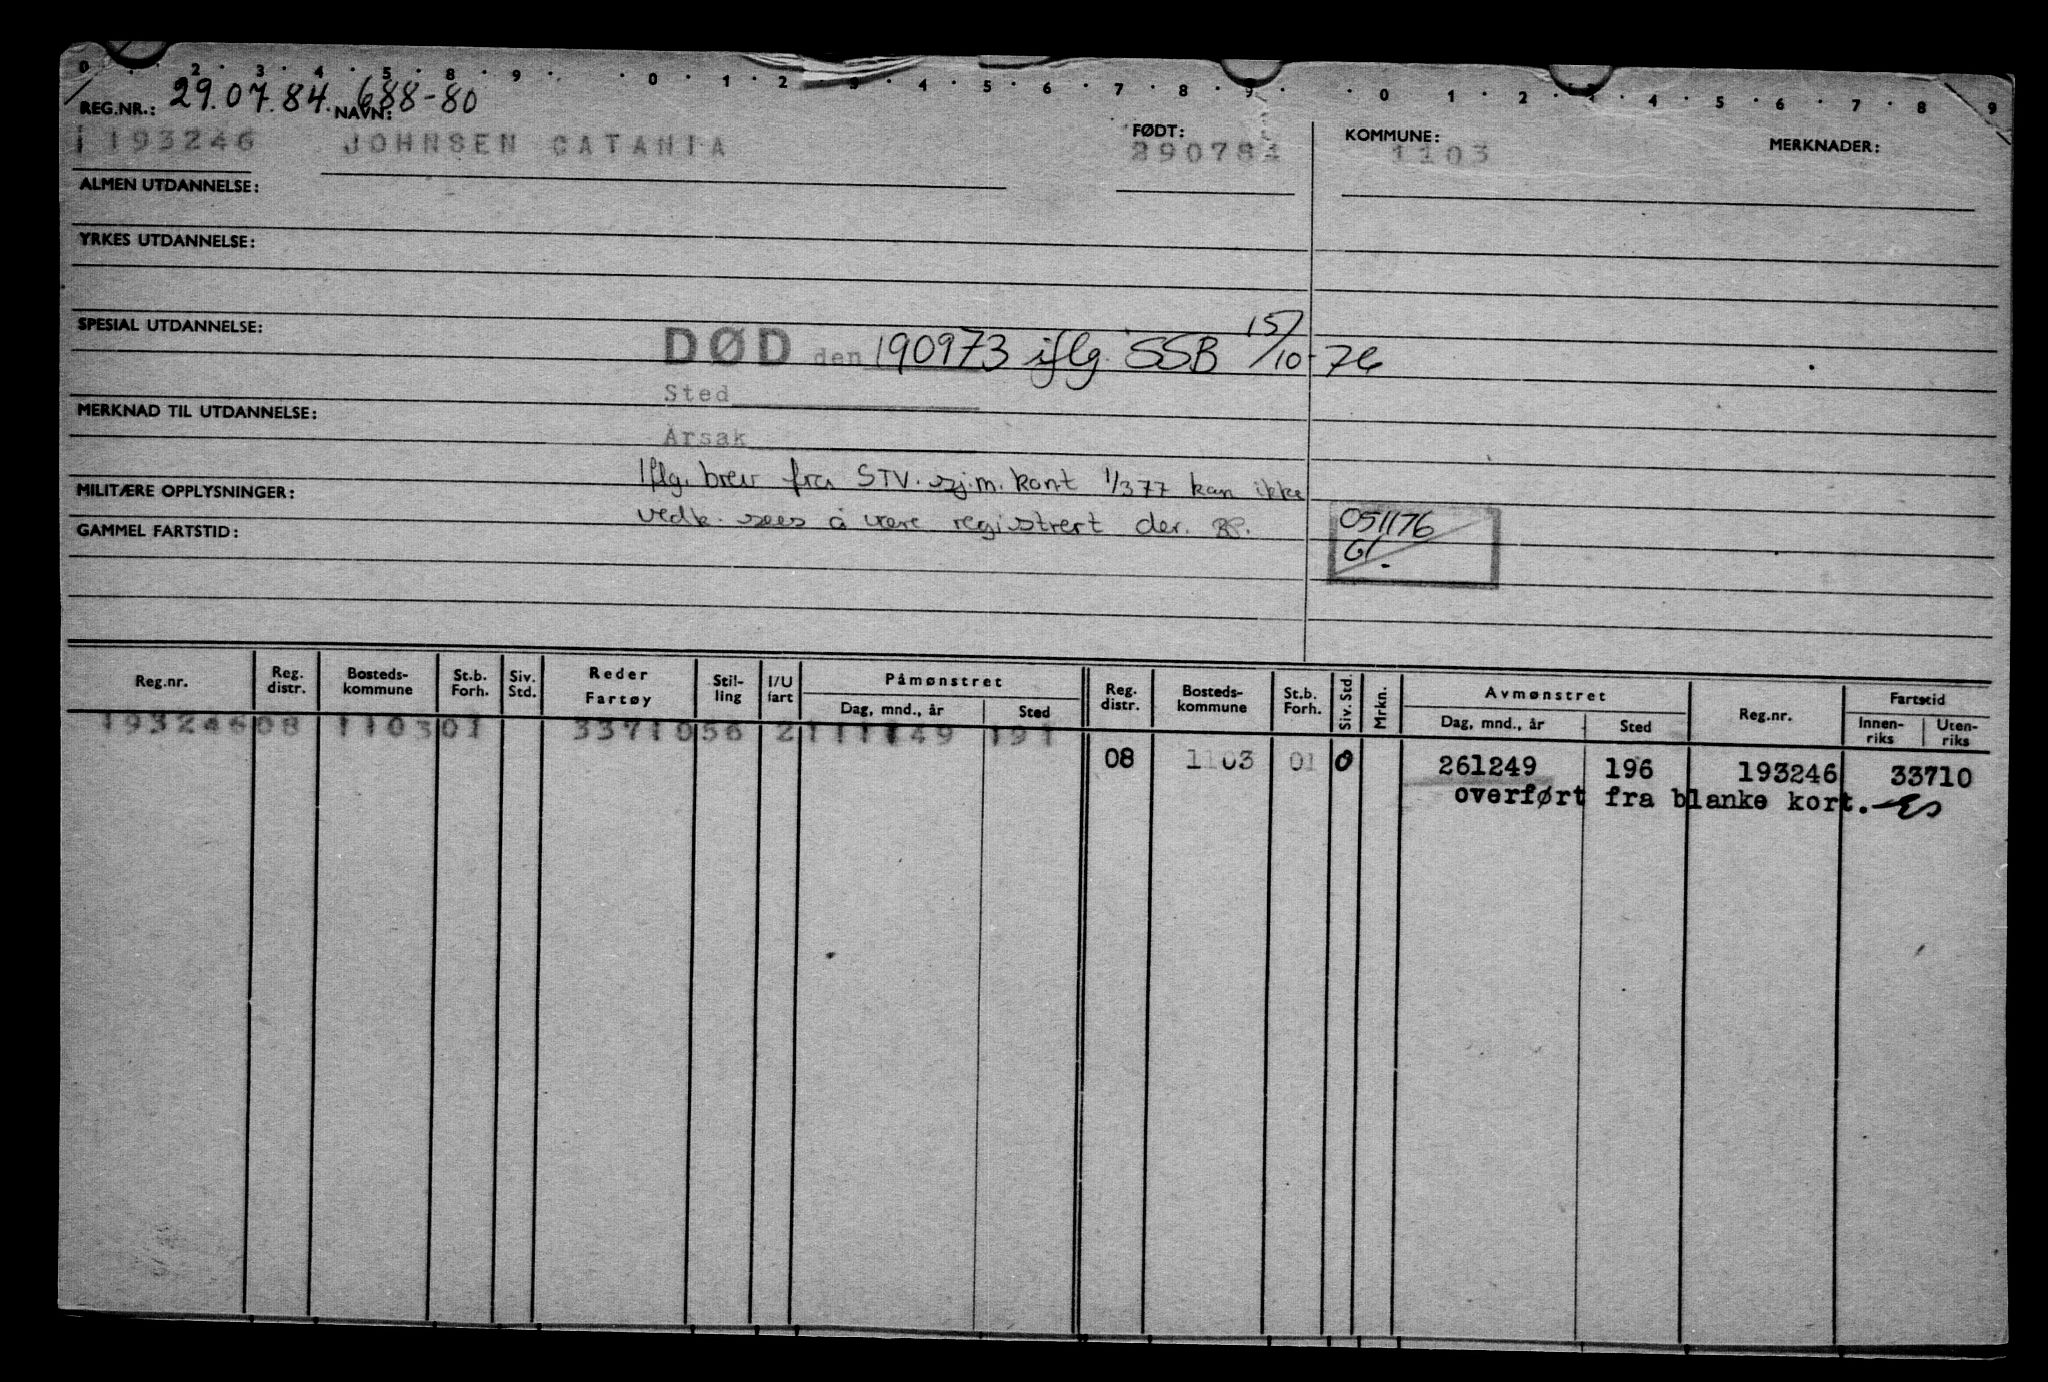 0 . 2 . 3 . 4 . 5 . 8 . 9 . . 0 . 1 . 2 . 3 . 4 . 5 . 6 . 7 . 8 . 9 . . 0 . 1 . 2 . 3 . 4 . 5 . 6 . 7 . 8 . 9
REG.NR.: 29.07.84. NAVN: 688-80
193246 JOHNSEN CATANIA FØDT: 290784 KOMMUNE: 1103 MERKNADER:
ALMEN UTDANNELSE:
YRKES UTDANNELSE:
SPESIAL UTDANNELSE:
DØD den 190973 iflg. SSB 15/10-76
Sted
MERKNAD TIL UTDANNELSE:
Årsak
Iflg. brev fra STV. sj.m. kont 1/377 kan ikke
MILITÆRE OPPLYSNINGER:
vedk. sees å være registrert der.
GAMMEL FARTSTID:
051176
Gl.
Reg.nr. Reg. distr. Bosteds-kommune St.b. Forh. Siv. Std. Reder Fartøy Stil-ling I/U fart Påmønstret Dag, mnd., år Sted Reg. distr. Bosteds-kommune St.b. Forh. Siv. Std. Mrkn. Avmønstret Dag, mnd., år Sted Reg.nr. Fartstid Innen-riks Uten-riks
193246 08 1103 01 33710 56 2 111149 191
08 1103 01 0 261249 196 193246 33710
overført fra blanke kort.